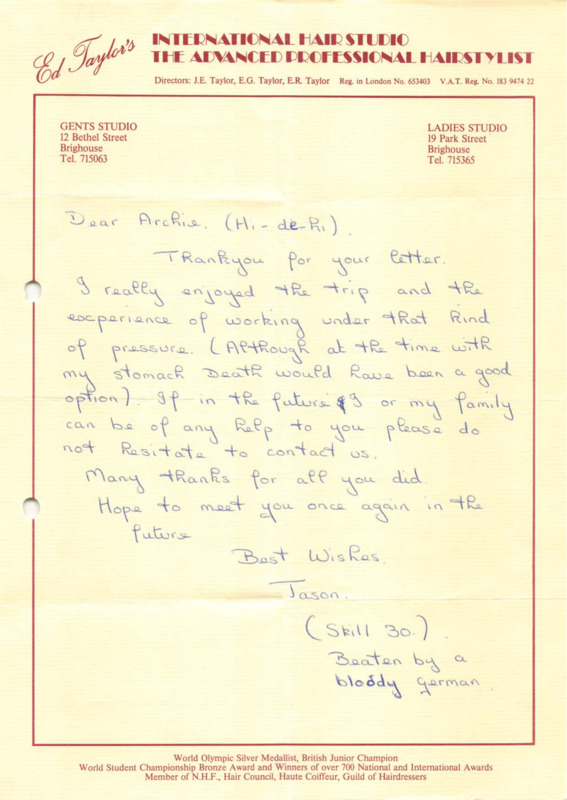 Ed Taylor's
INTERNATIONAL HAIR STUDIO
THE ADVANCED PROFESSIONAL HAIRSTYLIST
Directors: J.E. Taylor, E.G. Taylor, E.R. Taylor Reg. in London No. 653403 V.A.T. Reg. No. 183 9474 22
GENTS STUDIO
12 Bethel Street
Brighouse
Tel. 715063
LADIES STUDIO
19 Park Street
Brighouse
Tel. 715365
Dear Archie. (Hi-de-hi).
Thankyou for your letter.
I really enjoyed the trip and the
excperience of working under that kind
of pressure. (Although at the time with
my stomach Death would have been a good
option). If in the future I or my family
can be of any help to you please do
not hesitate to contact us.
Many thanks for all you did.
Hope to meet you once again in the
future
Best Wishes.
Jason.
(Skill 30.).
Beaten by a
bloddy german
World Olympic Silver Medallist, British Junior Champion
World Student Championship Bronze Award and Winners of over 700 National and International Awards
Member of N.H.F., Hair Council, Haute Coiffeur, Guild of Hairdressers